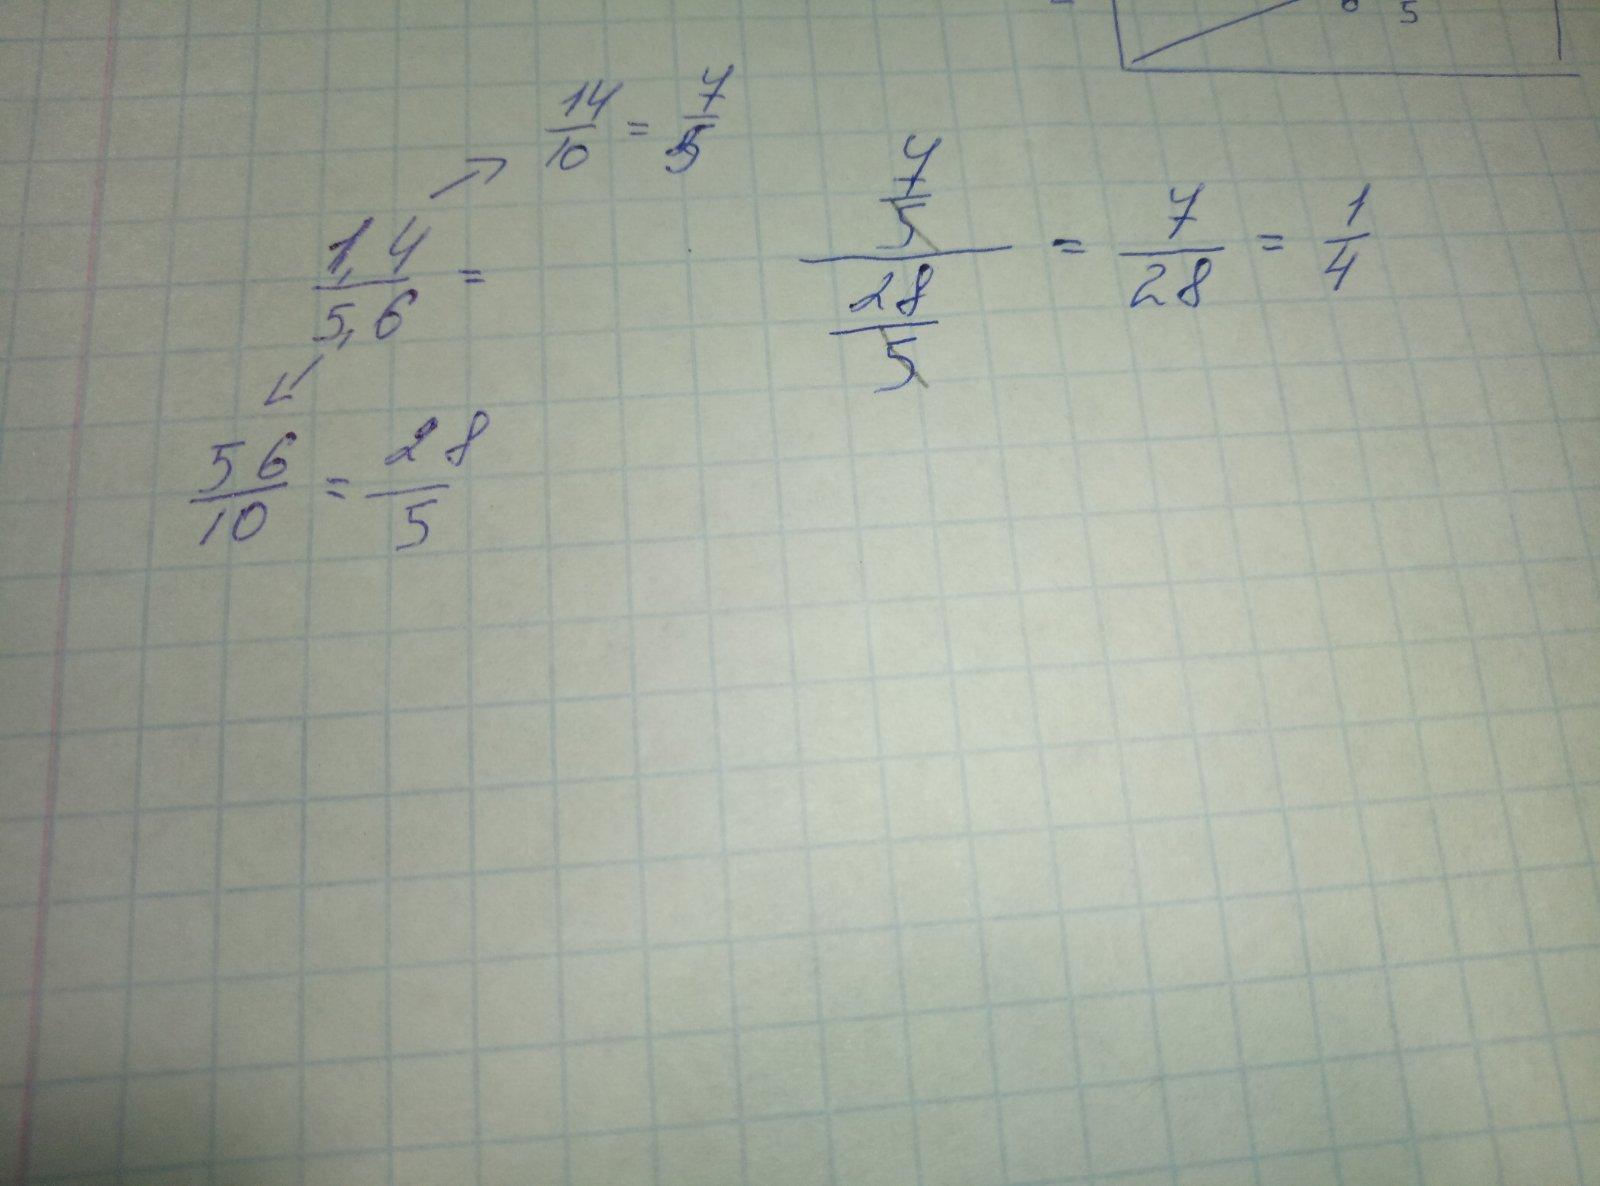 6 5
14/10 = 7/5
1,4/5,6 =
56/10 = 28/5
7/5 / 28/5 = 7/28 = 1/4